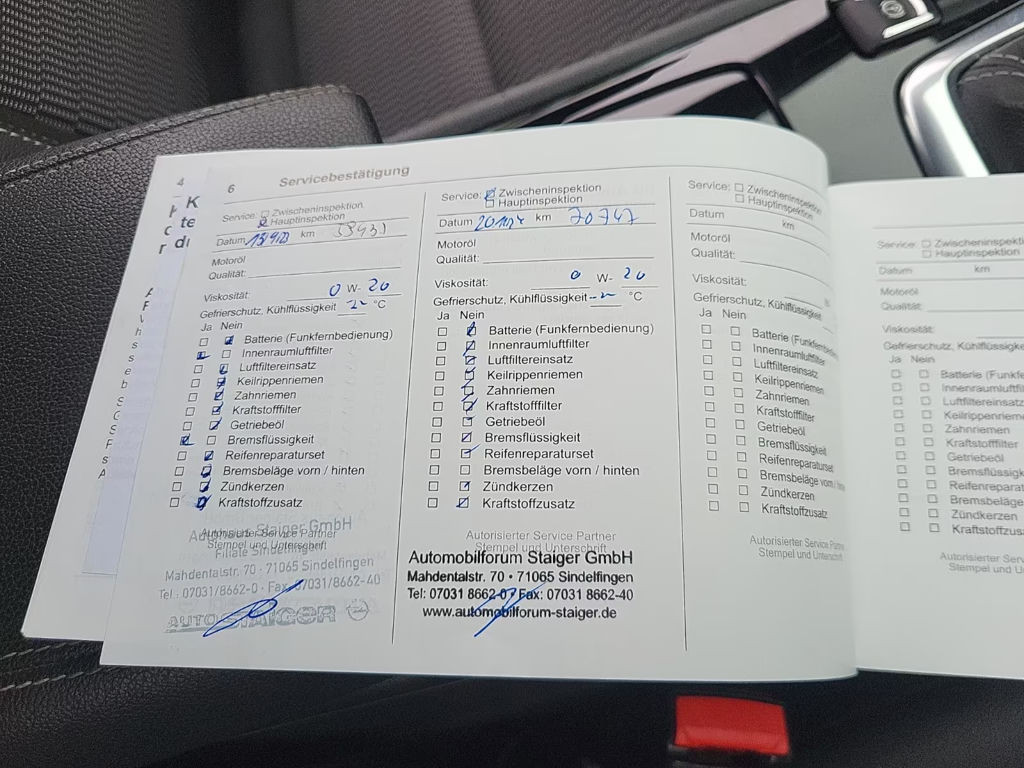 4
6 Servicebestätigung
K
te
d
Service: Zwischeninspektion
Hauptinspektion
Datum km
Motoröl
Qualität:
Viskosität: 0 W- 20
Gefrierschutz, Kühlflüssigkeit °C
Ja Nein
Batterie (Funkfernbedienung)
Innenraumluftfilter
Luftfiltereinsatz
Keilrippenriemen
Zahnriemen
Kraftstofffilter
Getriebeöl
Bremsflüssigkeit
Reifenreparaturset
Bremsbeläge vorn / hinten
Zündkerzen
Kraftstoffzusatz
Autorisierter Service Partner
Stempel und Unterschrift
Staiger GmbH
Filiale Sindelfingen
Mahdentalstr. 70 · 71065 Sindelfingen
Tel.: 07031/8662-0 · Fax: 07031/8662-40
AUTO STAIGER
Service: Zwischeninspektion
Hauptinspektion
Datum km 70747
Motoröl
Qualität:
Viskosität: 0 W- 20
Gefrierschutz, Kühlflüssigkeit °C
Ja Nein
Batterie (Funkfernbedienung)
Innenraumluftfilter
Luftfiltereinsatz
Keilrippenriemen
Zahnriemen
Kraftstofffilter
Getriebeöl
Bremsflüssigkeit
Reifenreparaturset
Bremsbeläge vorn / hinten
Zündkerzen
Kraftstoffzusatz
Autorisierter Service Partner
Stempel und Unterschrift
Automobilforum Staiger GmbH
Mahdentalstr. 70 · 71065 Sindelfingen
Tel: 07031 8662-0 · Fax: 07031 8662-40
www.automobilforum-staiger.de
Service: Zwischeninspektion
Hauptinspektion
Datum km
Motoröl
Qualität:
Viskosität:
Gefrierschutz, Kühlflüssigkeit
Ja Nein
Batterie (Funkfernbedienung
Innenraumluftfilter
Luftfiltereinsatz
Keilrippenriemen
Zahnriemen
Kraftstofffilter
Getriebeöl
Bremsflüssigkeit
Reifenreparaturset
Bremsbeläge vorn / hinten
Zündkerzen
Kraftstoffzusatz
Autorisierter Service Partne
Stempel und Unterschrift
Service: Zwischeninspekti
Hauptinspektion
Datum km
Motoröl
Qualität:
Viskosität:
Gefrierschutz, Kühlflüssigke
Ja Nein
Batterie (Funkf
Innenraumluftfi
Luftfiltereinsatz
Keilrippenrieme
Zahnriemen
Kraftstofffilter
Getriebeöl
Bremsflüssigk
Reifenreparat
Bremsbeläge
Zündkerzen
Kraftstoffzusa
Autorisierter Servic
Stempel und Un